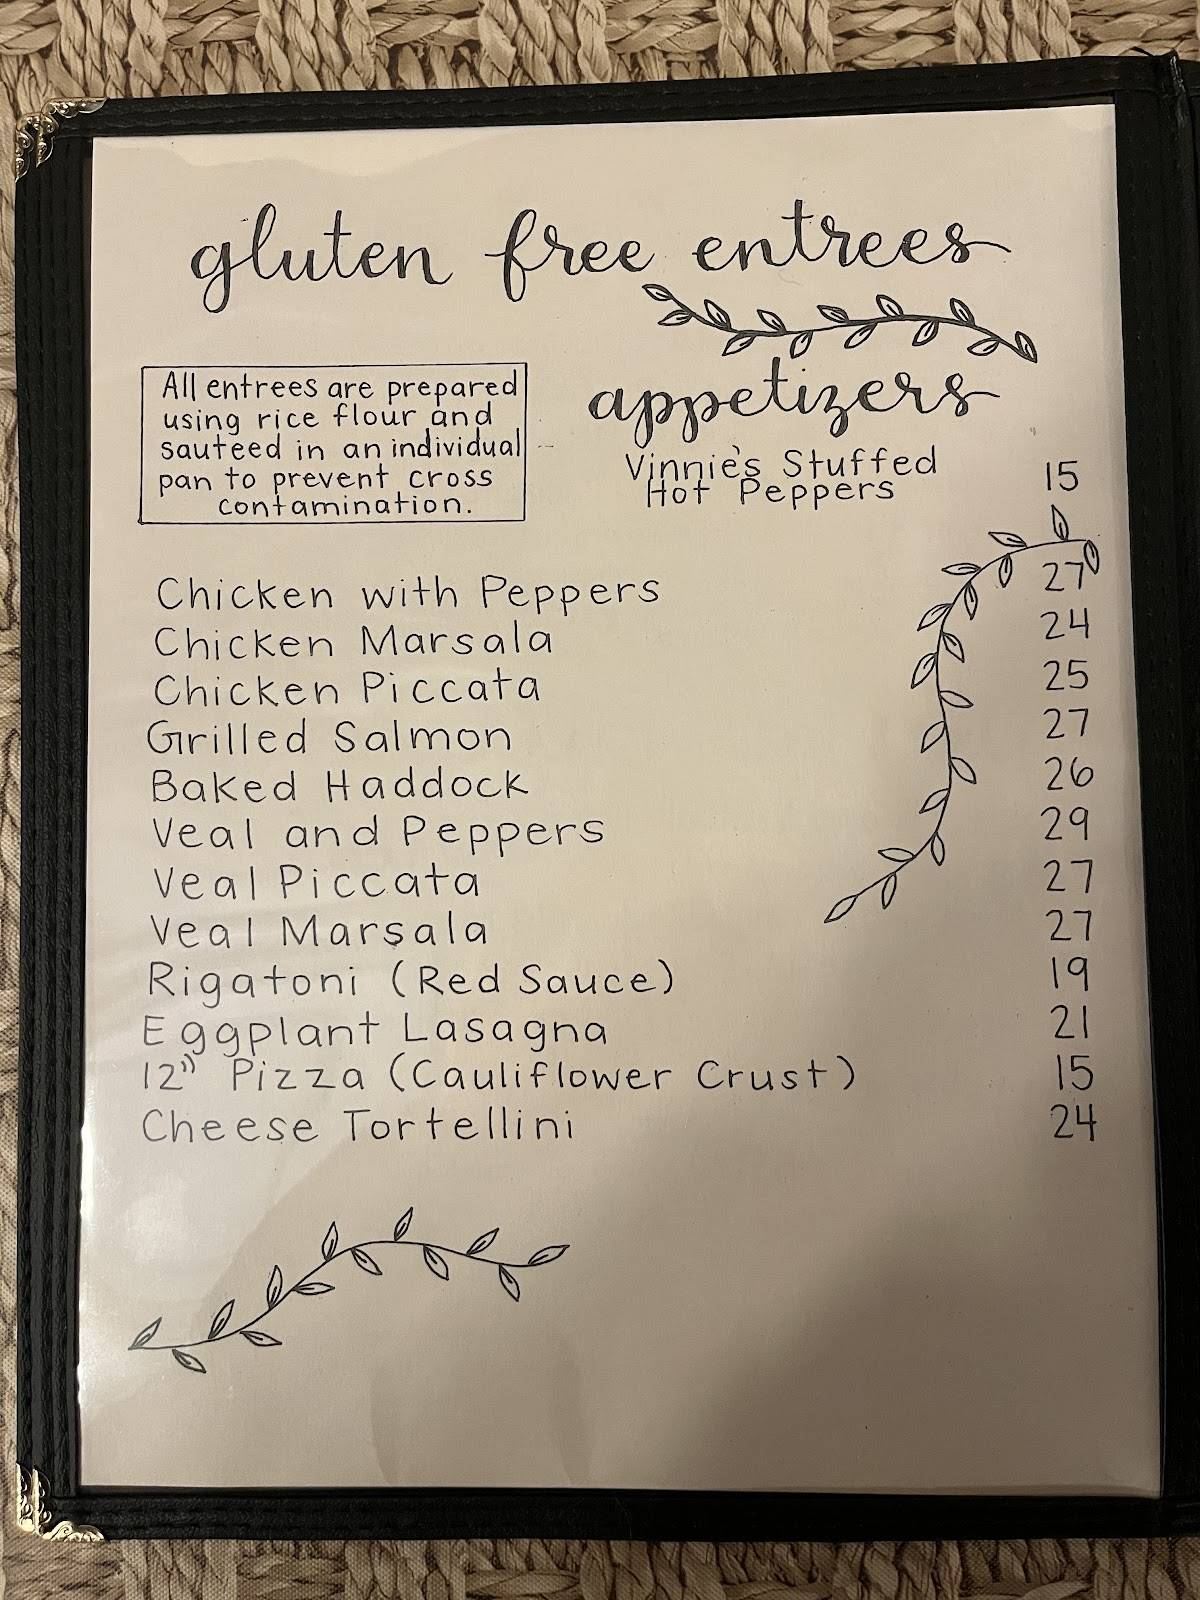 gluten free entrees
All entrees are prepared
using rice flour and
sauteed in an individual
pan to prevent cross
contamination.
appetizers
Vinnie's Stuffed
Hot Peppers 15
Chicken with Peppers 27
Chicken Marsala 24
Chicken Piccata 25
Grilled Salmon 27
Baked Haddock 26
Veal and Peppers 29
Veal Piccata 27
Veal Marsala 27
Rigatoni (Red Sauce) 19
Eggplant Lasagna 21
12" Pizza (Cauliflower Crust) 15
Cheese Tortellini 24